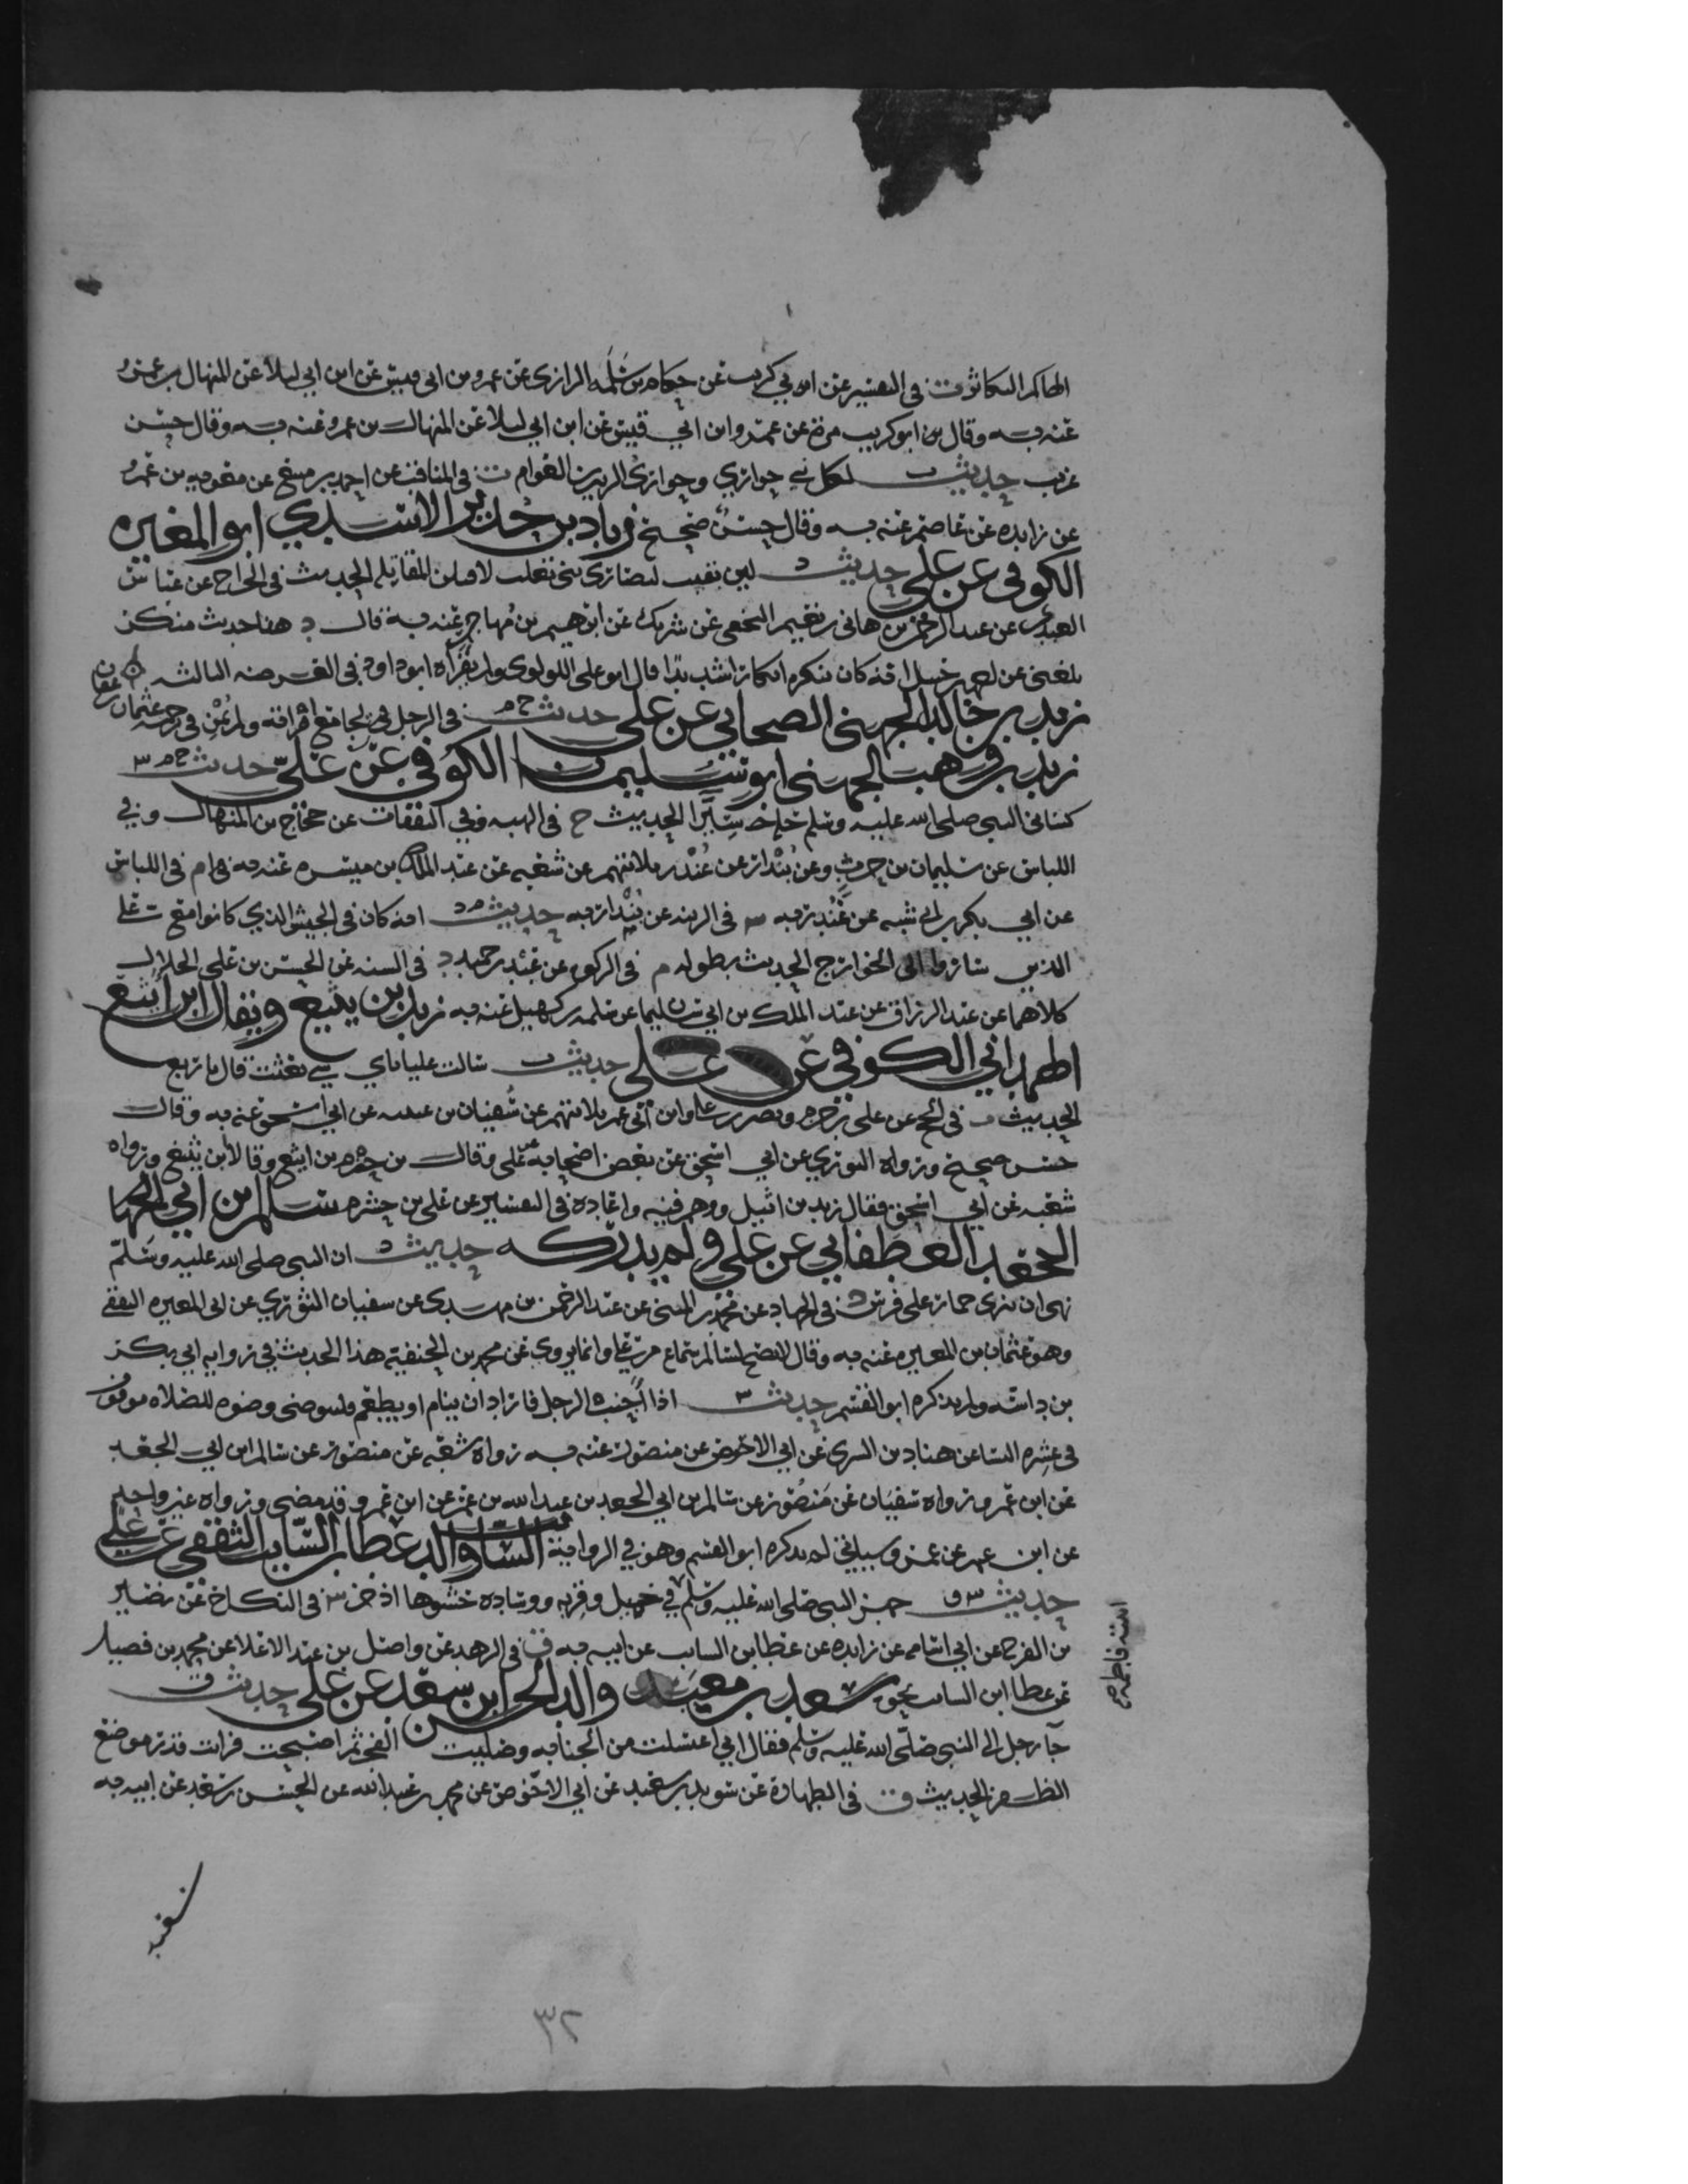 الهاكم التكاثر ت في التفسير عن ابي كريب عن حكام بن سلمه الرازي عن عمرو بن ابي قيس عن ابن ابي ليلا عن المنهال بن عمرو
عنه به وقال بن ابو كريب مره عن عمرو ابن ابي قيس عن ابن ابي ليلا عن المنهال بن عمرو عنه به وقال حسن
غريب حديث لكل نبي حواري وحواري الزبير بن العوام ت في المناقب عن احمد بن منيع عن معويه بن عمرو
عن زايده عن عاصم عنه به وقال حسن صحيح زياد بن حدير الاسدي ابو المغيره
الكوفي عن علي حديث د لين بقيت لنصاري بني تغلب لاقتلن المقاتله الحديث في الخراج عن عباس
العنبري عن عبد الرحمن بن هاني بن نعيم النخعي عن شريك عن ابرهيم بن مهاجر عنه به قال د هذا حديث منكر
بلغني عن احمد بن حنبل انه كان ينكره انكارا شديدا قال ابو علي اللولوي ولم يقراه ابو داود في العرضه الثالثه
زيد بن خالد الجهني الصحابي عن علي حديث خ م في الرجل يجامع امراته ولم يمن في ترجمه عثمان بن عفان
زيد بن وهب الجهني ابو سليمان الكوفي عن علي حديث خ م س
كساني النبي صلى الله عليه وسلم حله سيرا الحديث خ في الهبه وفي النفقات عن حجاج بن المنهال وفي
اللباس عن سليمان بن حرب وعن بندار عن غندر ثلاثتهم عن شعبه عن عبد الملك بن ميسره عنه به م في اللباس
عن ابي بكر بن ابي شيبه عن غندر به س في الزينه عن بندار به حديث م د انه كان في الجيش الذي كانوا مع علي
الذين ساروا الى الخوارج الحديث بطوله م في الزكوه عن عبد بن حميد د في السنه عن الحسن بن علي الخلال
كلاهما عن عبد الرزاق عن عبد الملك بن ابي سليمان عن سلمه بن كهيل عنه به زيد بن يثيع ويقال ابن اثيع
الهمداني الكوفي عن علي حديث ت سالت عليا باي شي بعثت قال باربع
الحديث ت في الحج عن علي بن خشرم ونصر بن علي وابن ابي عمر ثلاثتهم عن سفيان بن عيينه عن ابي اسحق عنه به وقال
حسن صحيح ورواه الثوري عن ابي اسحق عن بعض اصحابه عن علي وقال بن خشرم بن اثيع وقالا بن يثيع ورواه
شعبه عن ابي اسحق فقال زيد بن اثيل ووهم فيه واعاده في التفسير عن علي بن خشرم سالم بن ابي
الجعد الغطفاني عن علي ولم يدركه حديث د ان النبي صلى الله عليه وسلم
نهى ان ينزى حمار على فرس د في الجهاد عن محمد بن المثنى عن عبد الرحمن بن مهدي عن سفيان الثوري عن ابي المغيره الثقفي
وهو عثمان بن المغيره عنه به وقال لا يصح لسالم سماع من علي وانما يروي عن محمد بن الحنفية هذا الحديث في روايه ابي بكر
بن داسه ولم يذكره ابو القسم حديث س اذا اجنب الرجل فاراد ان ينام او يطعم فليتوضى وضوه للصلاه موقوف
في عشره النسا عن هناد بن السري عن ابي الاحوص عن منصور عنه به رواه شعبه عن منصور عن سالم ابن ابي الجعد
عن ابن عمر ورواه سفيان عن منصور عن سالم بن ابي الجعد بن عبد الله بن عمر عن ابن عمر وقد مضى ورواه غير واحد
عن ابن عمر عن عمر وسياتي لم يذكره ابو القسم وهو في الرواية السايب والد عطا بن السايب الثقفي عن علي
حديث س ق جهز النبي صلى الله عليه وسلم في خميل وقربه ووساده حشوها اذخر س في النكاح عن نصير
بن الفرج عن ابي اسامه عن زايده عن عطا بن السايب عن ابيه به ق في الزهد عن واصل بن عبد الاعلا عن محمد بن فضيل
عن عطا ابن السايب نحوه سعد بن معبد والد الحسن ابن سعد عن علي حديث ق
جا رجل الى النبي صلى الله عليه وسلم فقال اني اغتسلت من الجنابه وصليت الفجر ثم اصبحت فرايت قدر موضع
الظفر الحديث ق في الطهارة عن سويد بن سعيد عن ابي الاحوص عن محمد بن عبيد الله عن الحسن بن سعد عن ابيه به
ابنته فاطمه
سعيد
٣٢